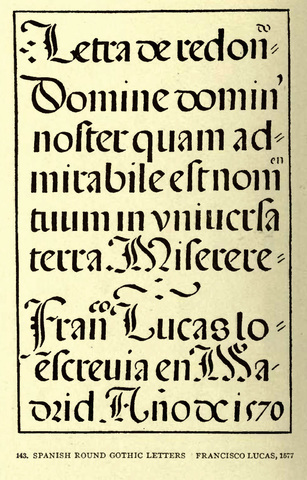 Letra de redon̄do=
Domine domin'
noster quam ad=
mirabile eſt nom̄en
tuum in vniuerſa
terra. Miſerere=
Fran.co Lucas lo=
eſcreuia en Ma=
drid Año de 1570
143. SPANISH ROUND GOTHIC LETTERS FRANCISCO LUCAS, 1577